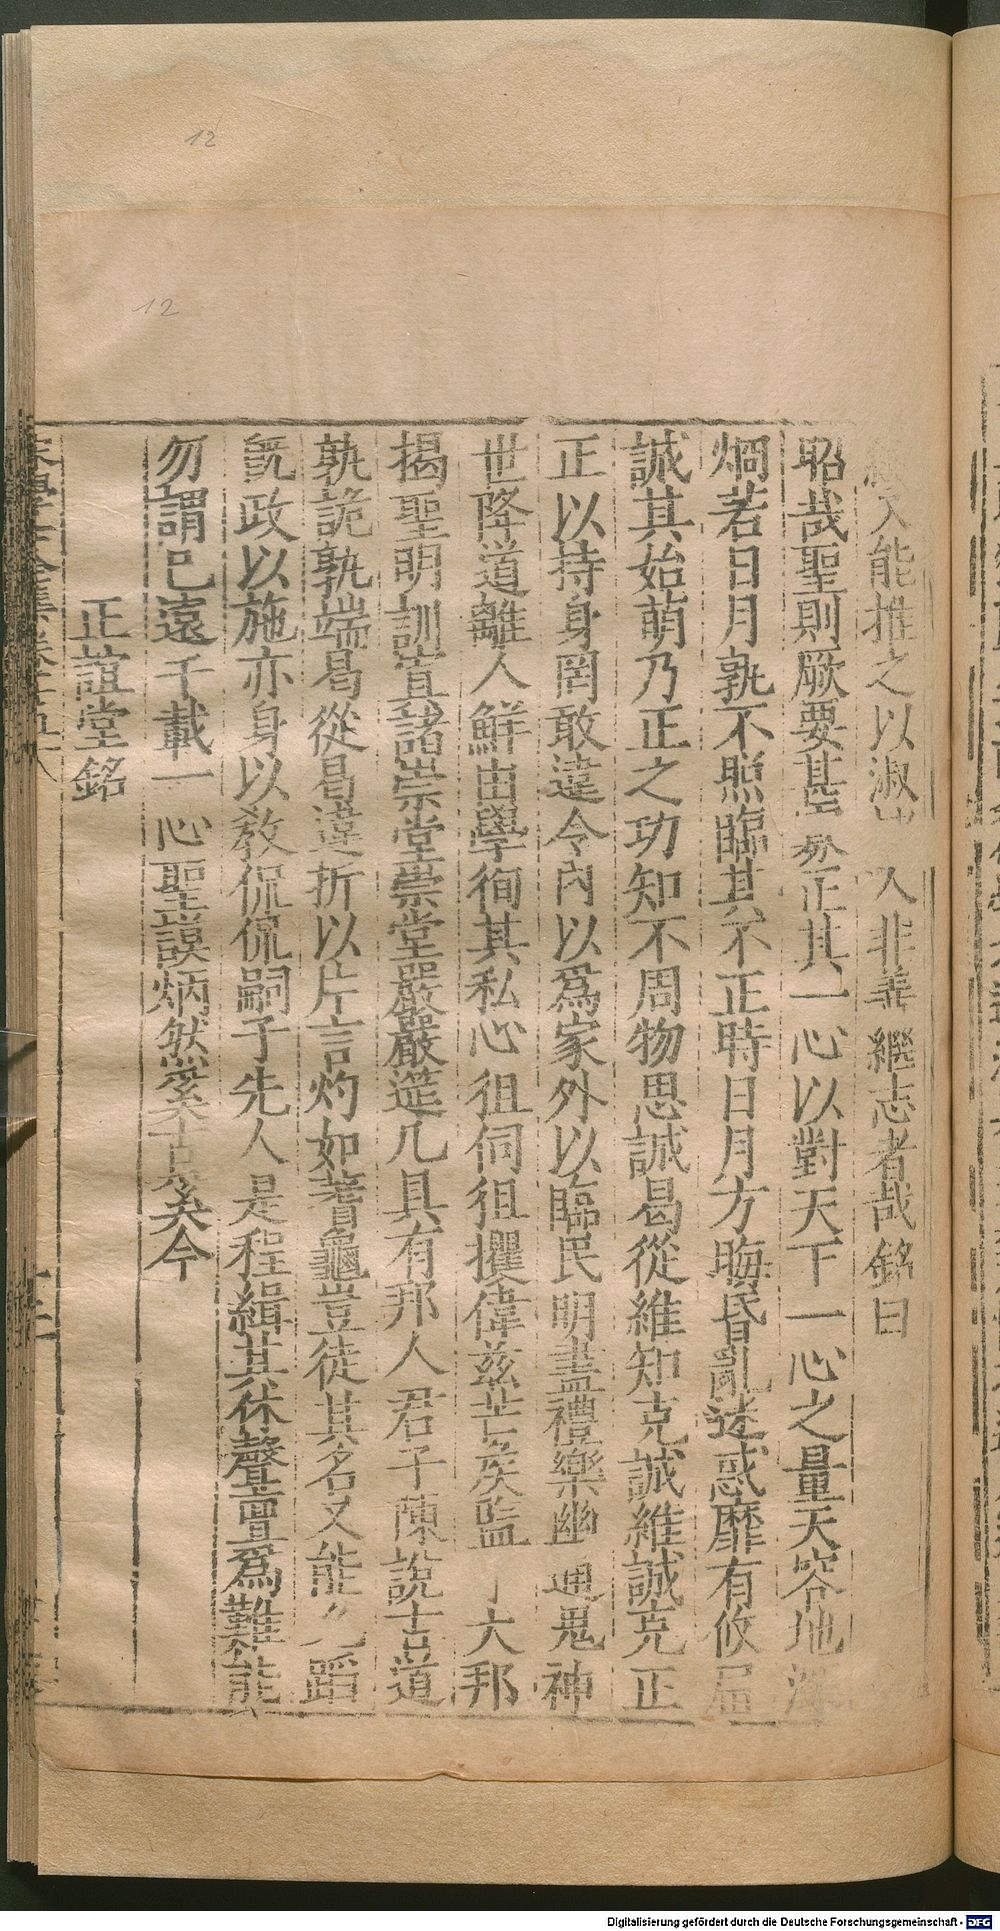 12
12
人能推之以淑 人非善繼志者哉銘曰
昭哉聖則厥要甚 正其一心以對天下一心之量天容地
烱若日月孰不照臨其不正時日月方晦昏亂迷惑靡有攸届
誠其始萌乃正之功知不周物思誠曷從維知克誠維誠克正
正以持身罔敢違令內以爲家外以臨民明盡禮樂幽通鬼神
世降道離人鮮由學徇其私心狙伺狙攫偉兹芒矦監 大邦
揭聖明訓寘諸崇堂崇堂嚴嚴筵几具有邦人君子陳說古道
孰詭孰端曷從曷違折以片言灼如蓍龜豈徒其名又能 蹈
旣政以施亦身以敎侃侃嗣子先人是程緝其休聲亶爲難能
勿謂已遠千載一心聖謨炳然奚古奚今
正誼堂銘
Digitalisierung gefördert durch die Deutsche Forschungsgemeinschaft - DFG